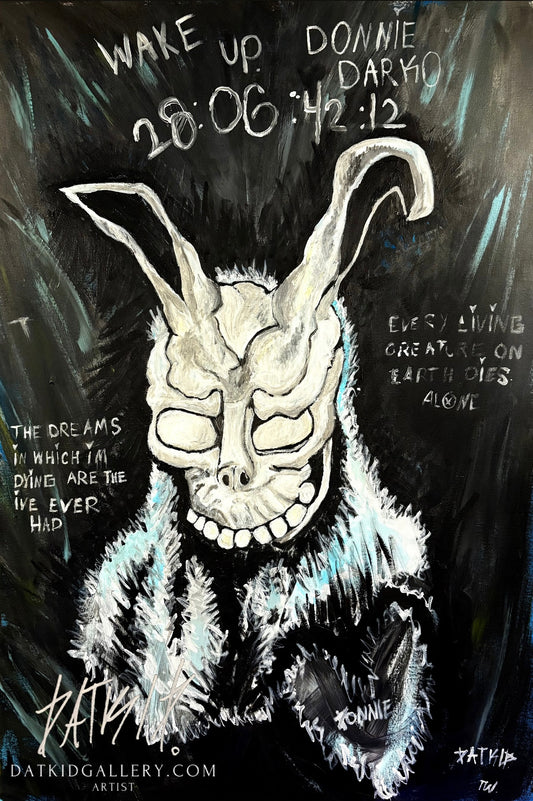 WAKE UP. DONNIE
DARKO
28:06:42:12
EVERY LIVING
CREATURE ON
EARTH DIES.
ALONE
THE DREAMS
iN WHiCH iM
DYiNG ARE THE
iVE EVER
HAD
DONNIE
DATKID.
DATKIDGALLERY.COM
ARTIST
DATKID
TW